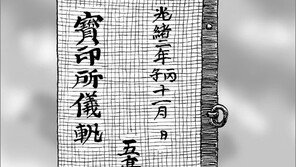 光緒二年丙子十一月 日
寶印所儀軌
五萬